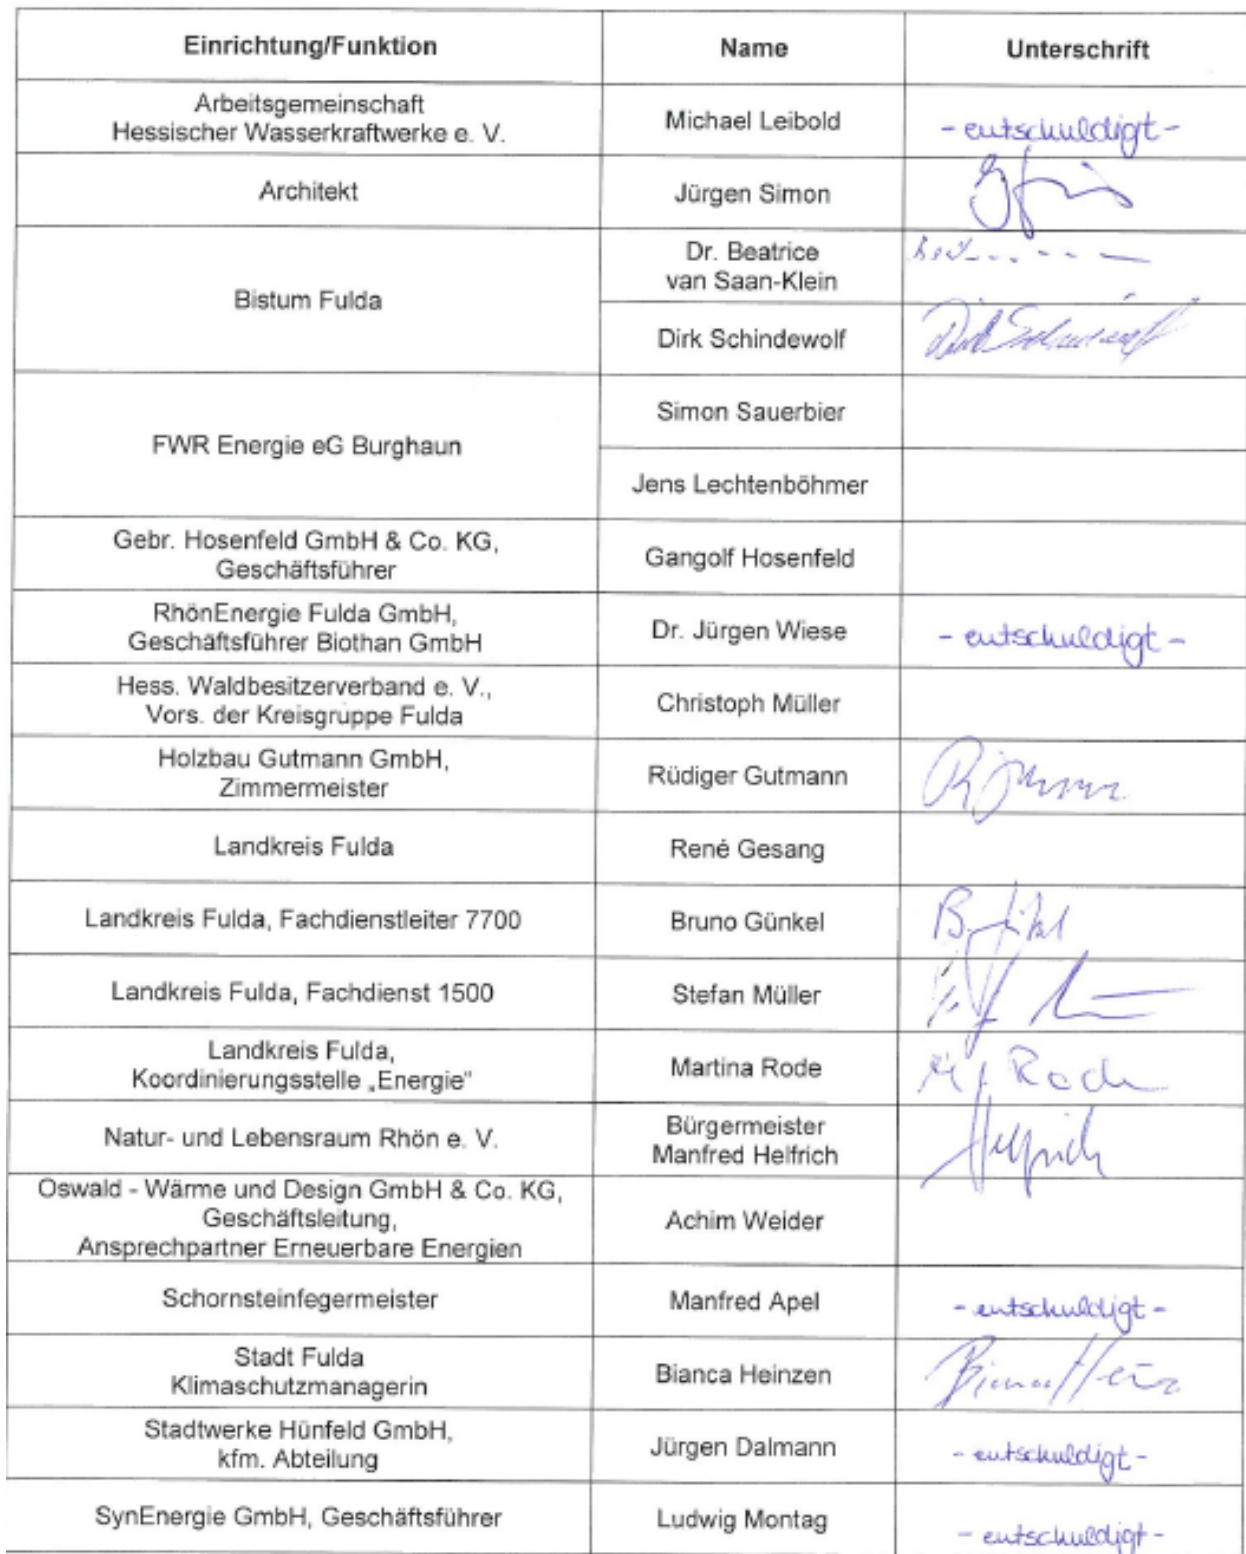 Einrichtung/Funktion Name Unterschrift
Arbeitsgemeinschaft
Hessischer Wasserkraftwerke e. V. Michael Leibold - entschuldigt -
Architekt Jürgen Simon
Bistum Fulda
Dr. Beatrice
van Saan-Klein
Dirk Schindewolf
FWR Energie eG Burghaun
Simon Sauerbier
Jens Lechtenböhmer
Gebr. Hosenfeld GmbH & Co. KG,
Geschäftsführer
Gangolf Hosenfeld
RhönEnergie Fulda GmbH,
Geschäftsführer Biothan GmbH
Dr. Jürgen Wiese - entschuldigt -
Hess. Waldbesitzerverband e. V.,
Vors. der Kreisgruppe Fulda
Christoph Müller
Holzbau Gutmann GmbH,
Zimmermeister
Rüdiger Gutmann
Landkreis Fulda René Gesang
Landkreis Fulda, Fachdienstleiter 7700 Bruno Günkel
Landkreis Fulda, Fachdienst 1500 Stefan Müller
Landkreis Fulda,
Koordinierungsstelle „Energie“
Martina Rode Rode
Natur- und Lebensraum Rhön e. V.
Bürgermeister
Manfred Helfrich
Helfrich
Oswald - Wärme und Design GmbH & Co. KG,
Geschäftsleitung,
Ansprechpartner Erneuerbare Energien
Achim Weider
Schornsteinfegermeister Manfred Apel - entschuldigt -
Stadt Fulda
Klimaschutzmanagerin
Bianca Heinzen
Stadtwerke Hünfeld GmbH,
kfm. Abteilung
Jürgen Dalmann - entschuldigt -
SynEnergie GmbH, Geschäftsführer Ludwig Montag - entschuldigt -